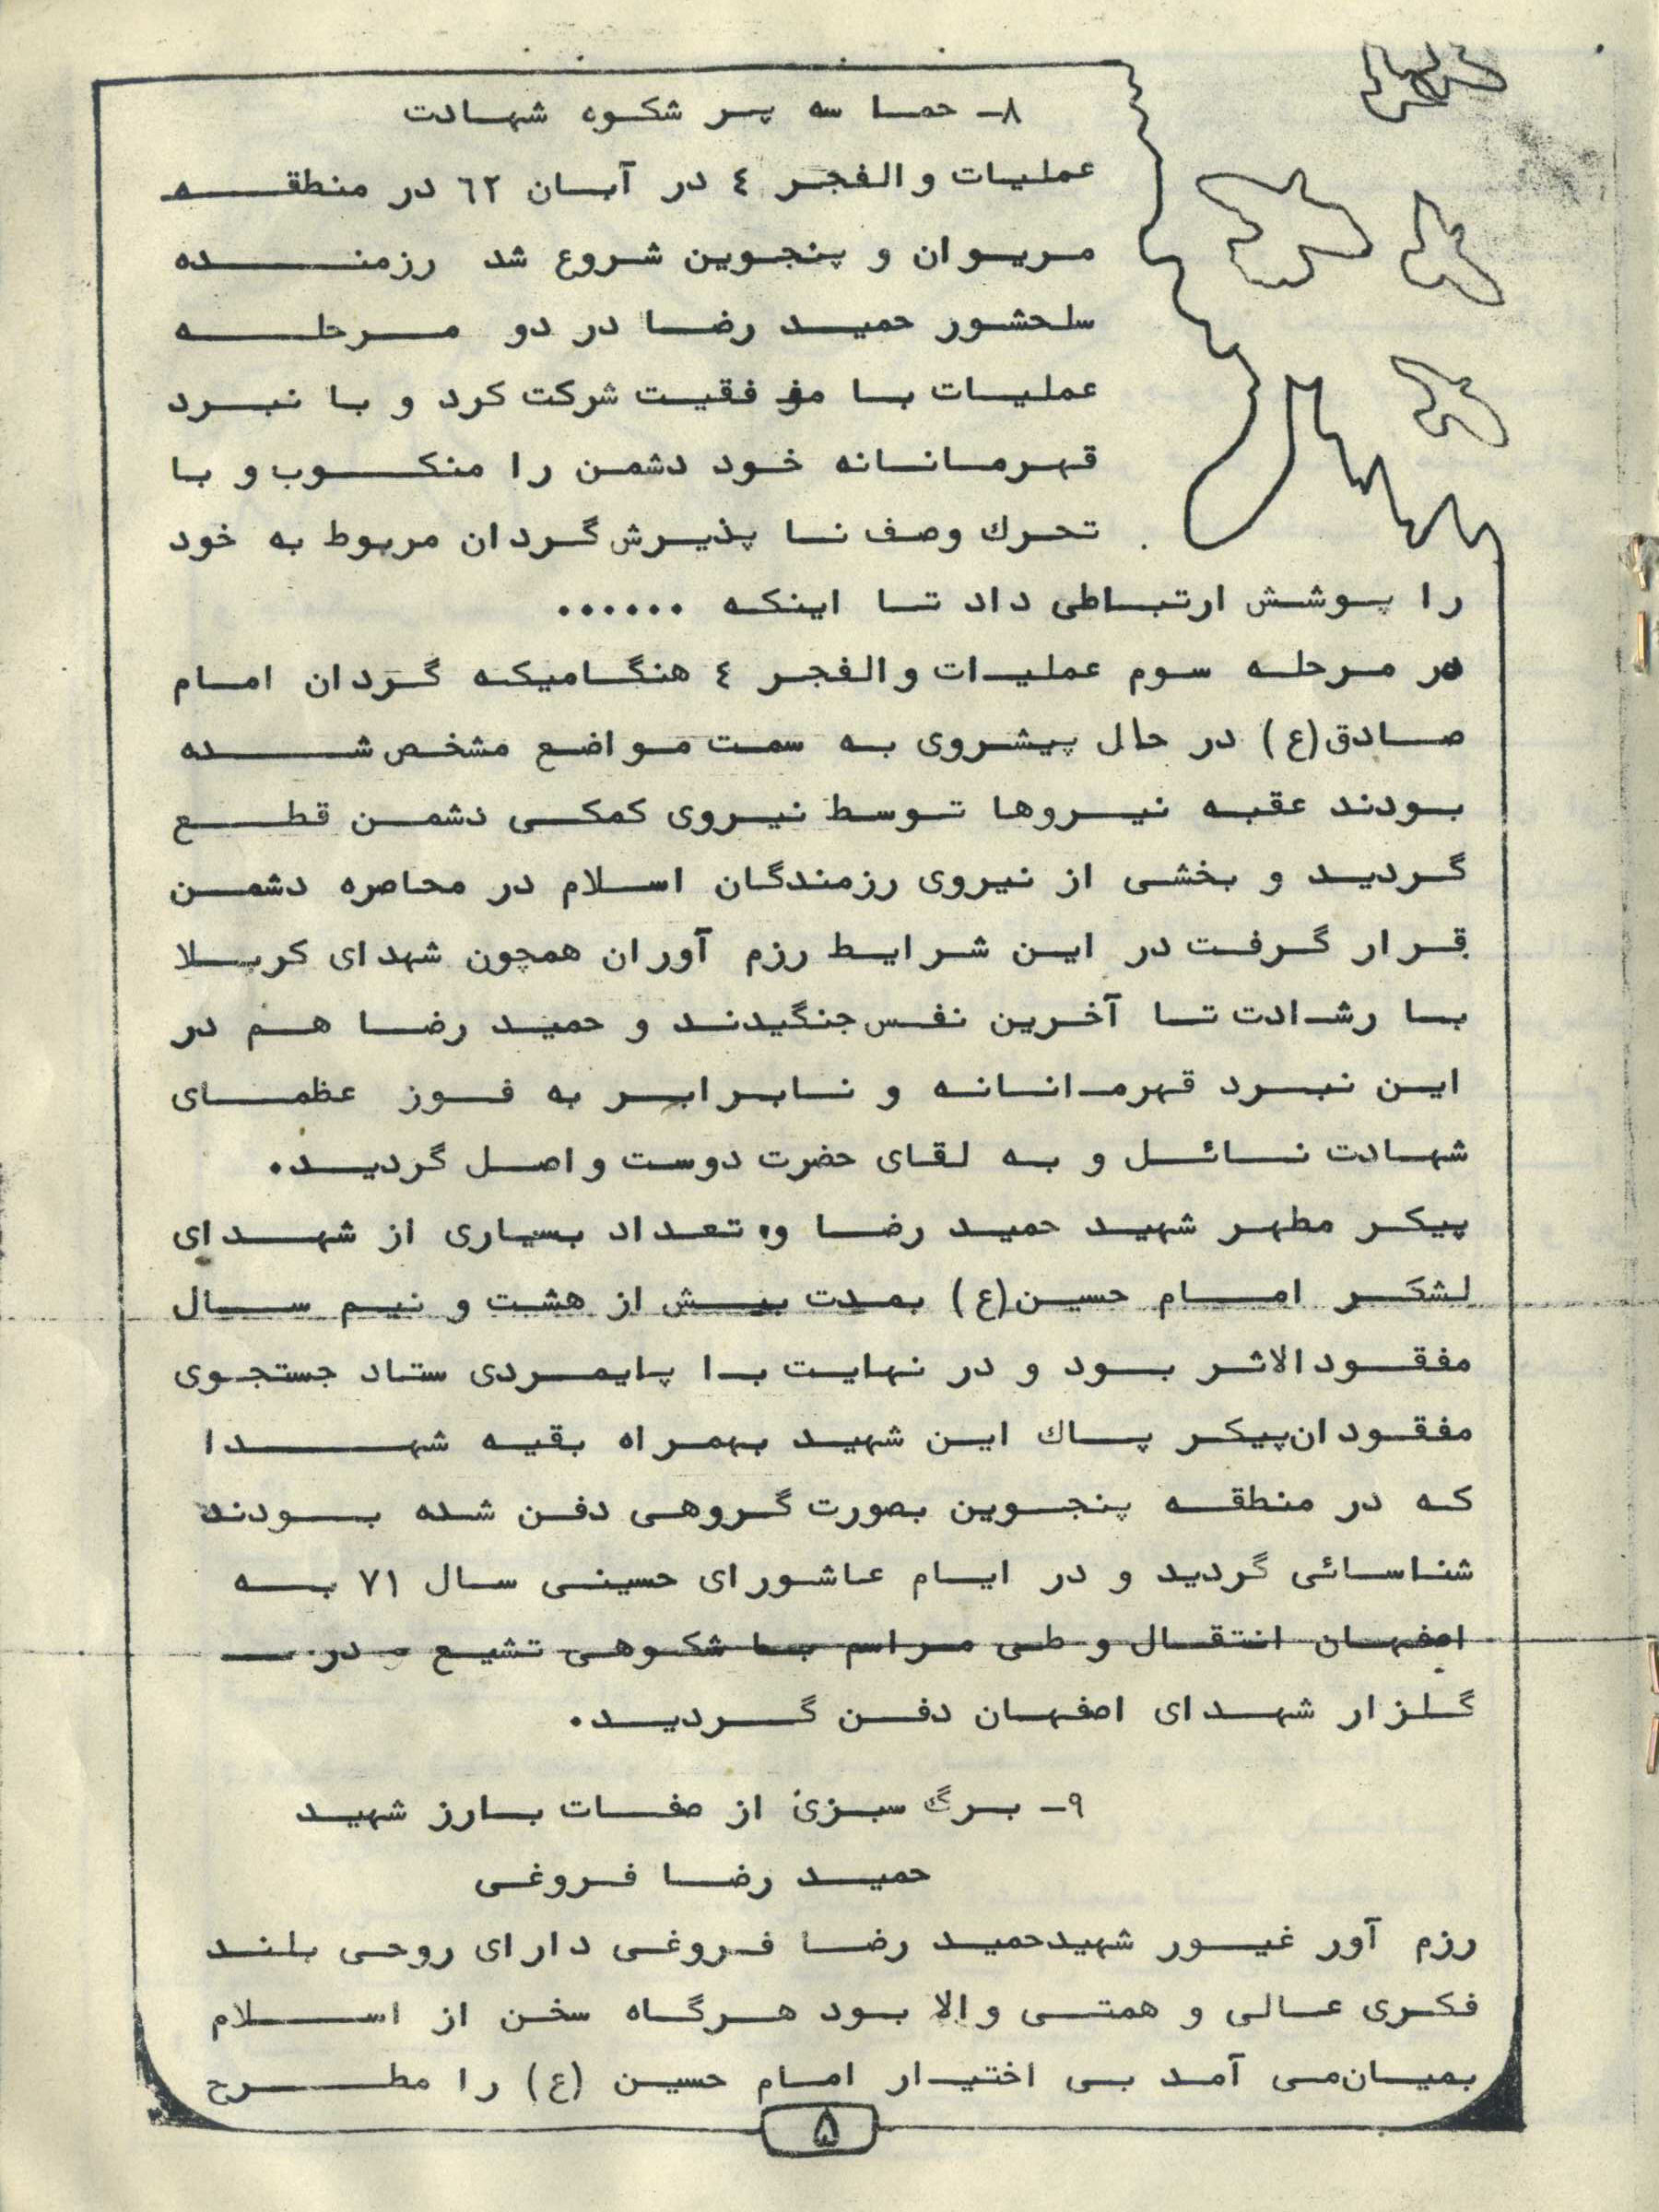 ۸- حماسه پر شکوه شهادت
عملیات والفجر ٤ در آبان ٦٢ در منطقه
مریوان و پنجوین شروع شد رزمنده
سلحشور حمید رضا در دو مرحله
عملیات با موفقیت شرکت کرد و با نبرد
قهرمانانه خود دشمن را منکوب و با
تحرك وصف نا پذیرش گردان مربوط به خود
را پوشش ارتباطی داد تا اینکه ......
در مرحله سوم عملیات والفجر ٤ هنگامیکه گردان امام
صادق(ع) در حال پیشروی به سمت مواضع مشخص شده
بودند عقبه نیروها توسط نیروی کمکی دشمن قطع
گردید و بخشی از نیروی رزمندگان اسلام در محاصره دشمن
قرار گرفت در این شرایط رزم آوران همچون شهدای کربلا
با رشادت تا آخرین نفس جنگیدند و حمید رضا هم در
این نبرد قهرمانانه و نابرابر به فوز عظمای
شهادت نائل و به لقای حضرت دوست واصل گردید.
پیکر مطهر شهید حمید رضا و تعداد بسیاری از شهدای
لشکر امام حسین(ع) بمدت بیش از هشت و نیم سال
مفقودالاثر بود و در نهایت با پایمردی ستاد جستجوی
مفقودان پیکر پاك این شهید بهمراه بقیه شهدا
که در منطقه پنجوین بصورت گروهی دفن شده بودند
شناسائی گردید و در ایام عاشورای حسینی سال ۷۱ به
اصفهان انتقال و طی مراسم با شکوهی تشیع و در
گلزار شهدای اصفهان دفن گردید.
۹- برگ سبزی از صفات بارز شهید
حمید رضا فروغی
رزم آور غیور شهید حمید رضا فروغی دارای روحی بلند
فکری عالی و همتی والا بود هرگاه سخن از اسلام
بمیان می آمد بی اختیار امام حسین (ع) را مطرح
۵